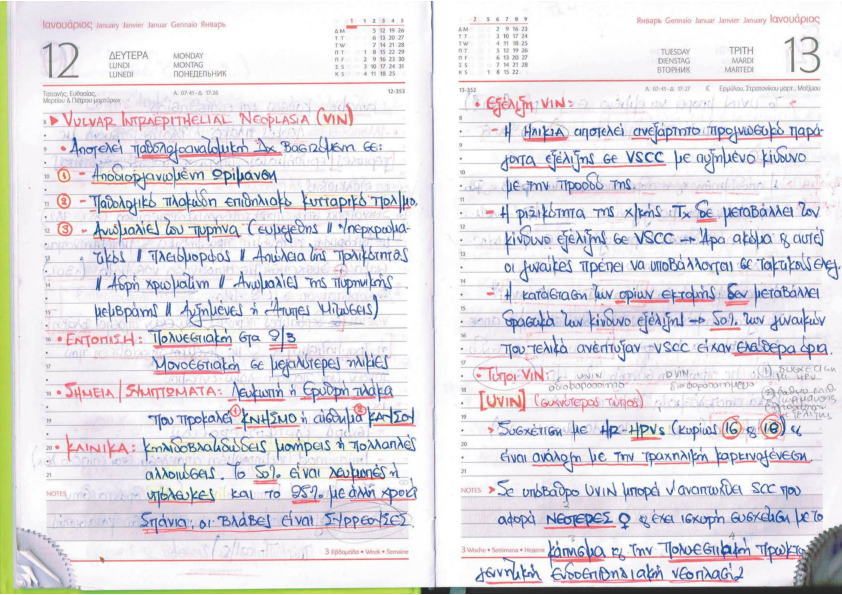 Ιανουάριος January Janvier Januar Gennaio Январь
12
ΔΕΥΤΕΡΑ MONDAY
LUNDI MONTAG
LUNEDI ПОНЕДЕЛЬНИК
Τατιανής, Ευθασίας,
Μερτίου & Πέτρου μαρτύρων
Α. 07:41 - Δ. 17:26
12-353
▸ VULVAR INTRAEPITHELIAL NEOPLASIA (VIN)
• Αποτελεί παθολογοανατομική Δx βασιζόμενη σε:
① - Αποδιοργανωμένη ωρίμανση
② - Παθολογικό πλακώδη επιθηλιακό κυτταρικό πολ/μο.
③ - Ανωμαλίες του πυρήνα (ευμεγέθης // υπερχρωμα-
τικός // πλειόμορφος // Απώλεια της πολικότητας
// Αδρή χρωματίνη // Ανωμαλίες της πυρηνικής
μεμβράνης // Αυξημένες ή Άτυπες Μιτώσεις)
• ΕΝΤΟΠΙΣΗ: Πολυεστιακή στα 2/3
Μονοεστιακή σε μεγαλύτερες ηλικίες
• ΣΗΜΕΙΑ/ΣΥΜΠΤΩΜΑΤΑ: Λευκωπή ή Ερυθρή πλάκα
που προκαλεί ① ΚΝΗΣΜΟ ή αίσθημα ② ΚΑΥΣΟΥ
• ΚΛΙΝΙΚΑ: Κηλιδοβλατιδώδεις μονήρεις ή πολλαπλές
αλλοιώσεις. Το 50% είναι λευκωπές ή
υπόλευκες και το 25% με άλλη χροιά
Σπάνια, οι βλάβες είναι ΣΥΡΡΕΟΥΣΕΣ
NOTES
3 Εβδομάδα • Week • Semaine
Январь Gennaio Januar Janvier January Ιανουάριος
13
TUESDAY ΤΡΙΤΗ
DIENSTAG MARDI
ВТОРНИК MARTEDI
13-352
Α. 07:41 - Δ. 17:27
Ερμύλου, Στρατονίκου μαρτ., Μαξίμου
• ΕΞΕΛΙΞΗ VIN:
- Η ΗΛΙΚΙΑ αποτελεί ανεξάρτητο προγνωστικό παρά-
γοντα εξέλιξης σε VSCC με αυξημένο κίνδυνο
με την πρόοδό της.
- Η ριζικότητα της χ/κής Τx δε μεταβάλλει τον
κίνδυνο εξέλιξης σε VSCC → Άρα ακόμα & αυτές
οι γυναίκες πρέπει να υποβάλλονται σε τακτικούς ελεγ.
- Η κατάσταση των ορίων εκτομής δεν μεταβάλλει
δραστικά τον κίνδυνο εξέλιξης → 50% των γυναικών
που τελικά ανέπτυξαν VSCC είχαν ελεύθερα όρια.
• Τύποι VIN: UVIN DVIN
αδιαφοροποίητο διαφοροποιημένο
[UVIN] (συχνότερος τύπος)
▸ Συσχέτιση με HR-HPVs (κυρίως 16 & 18) &
είναι ανάλογη με την τραχηλική καρκινογένεση.
NOTES
▸ Σε υπόβαθρο UVIN μπορεί ν'αναπτυχθεί SCC που
αφορά ΝΕΟΤΕΡΕΣ ♀ & έχει ισχυρή συσχέτιση με το
3 Woche • Settimana • Неделя
κάπνισμα & την Πολυεστιακή Πρωκτο
γεννητική ενδοεπιθηλιακή νεοπλασία